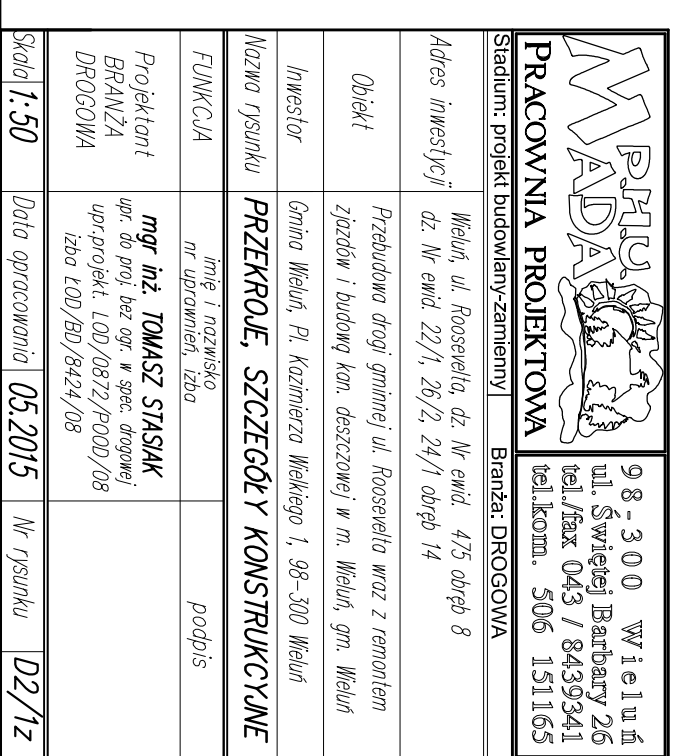 P.H.U.
MADA
PRACOWNIA PROJEKTOWA
98-300 Wieluń
ul. Świętej Barbary 26
tel./fax 043 / 8439341
tel.kom. 506 151165
Stadium: projekt budowlany-zamienny
Branża: DROGOWA
Adres inwestycji
Wieluń, ul. Roosevelta, dz. Nr ewid. 475 obręb 8
dz. Nr ewid. 22/1, 26/2, 24/1 obręb 14
Obiekt
Przebudowa drogi gminnej ul. Roosevelta wraz z remontem
zjazdów i budową kan. deszczowej w m. Wieluń, gm. Wieluń
Inwestor
Gmina Wieluń, Pl. Kazimierza Wielkiego 1, 98-300 Wieluń
Nazwa rysunku
PRZEKROJE, SZCZEGÓŁY KONSTRUKCYJNE
FUNKCJA
imię i nazwisko
nr uprawnień, izba
podpis
Projektant
BRANŻA
DROGOWA
mgr inż. TOMASZ STASIAK
upr. do proj. bez ogr. w spec. drogowej
upr.projekt. LOD/0872/POOD/08
izba ŁOD/BD/8424/08
Skala 1:50
Data opracowania 05.2015
Nr rysunku D2/1z